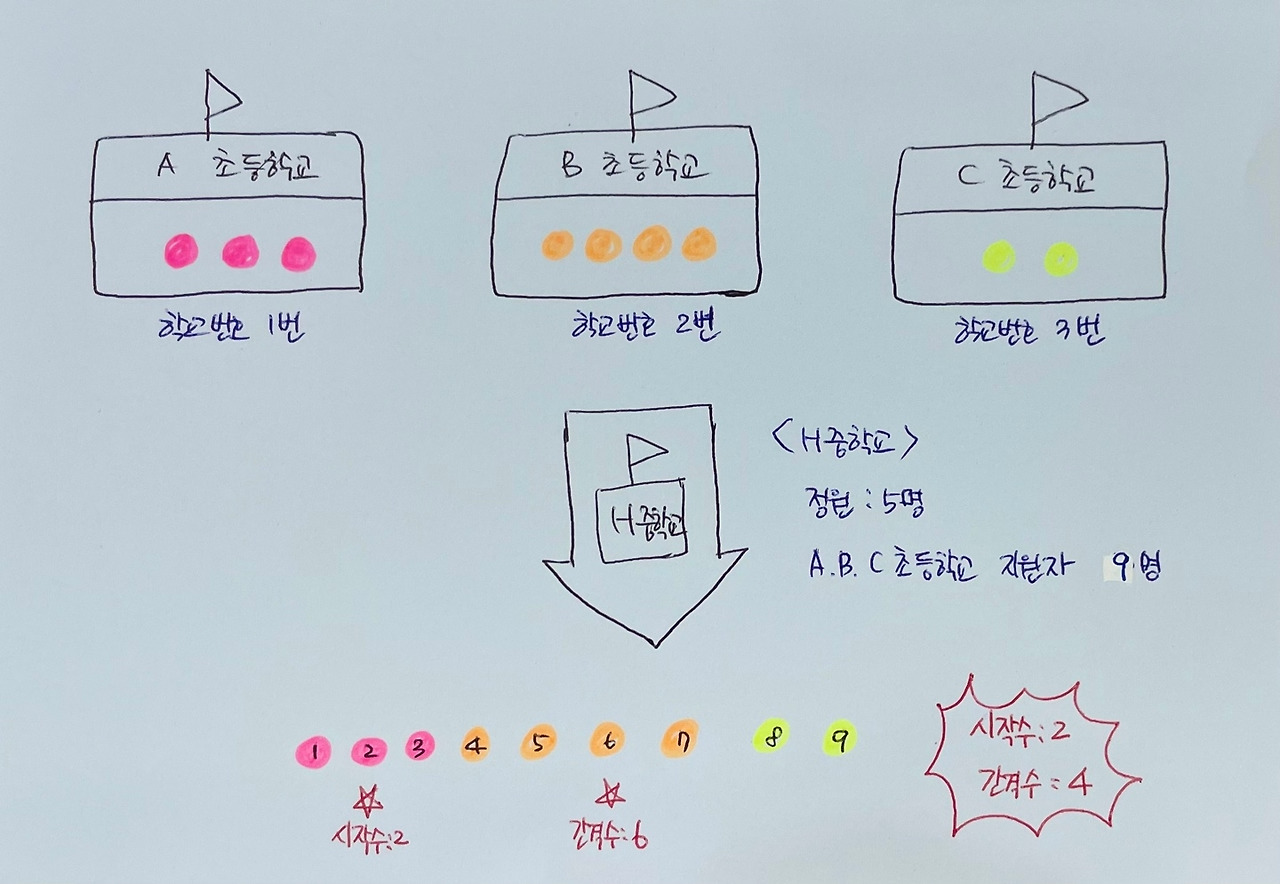 A 초등학교
B 초등학교
C 초등학교
학교번호 1번
학교번호 2번
학교번호 3번
<H중학교>
H중학교
정원 : 5명
A.B.C 초등학교 지원자 9명
1 2 3 4 5 6 7 8 9
시작수:2
간격수:6
시작수:2
간격수:4